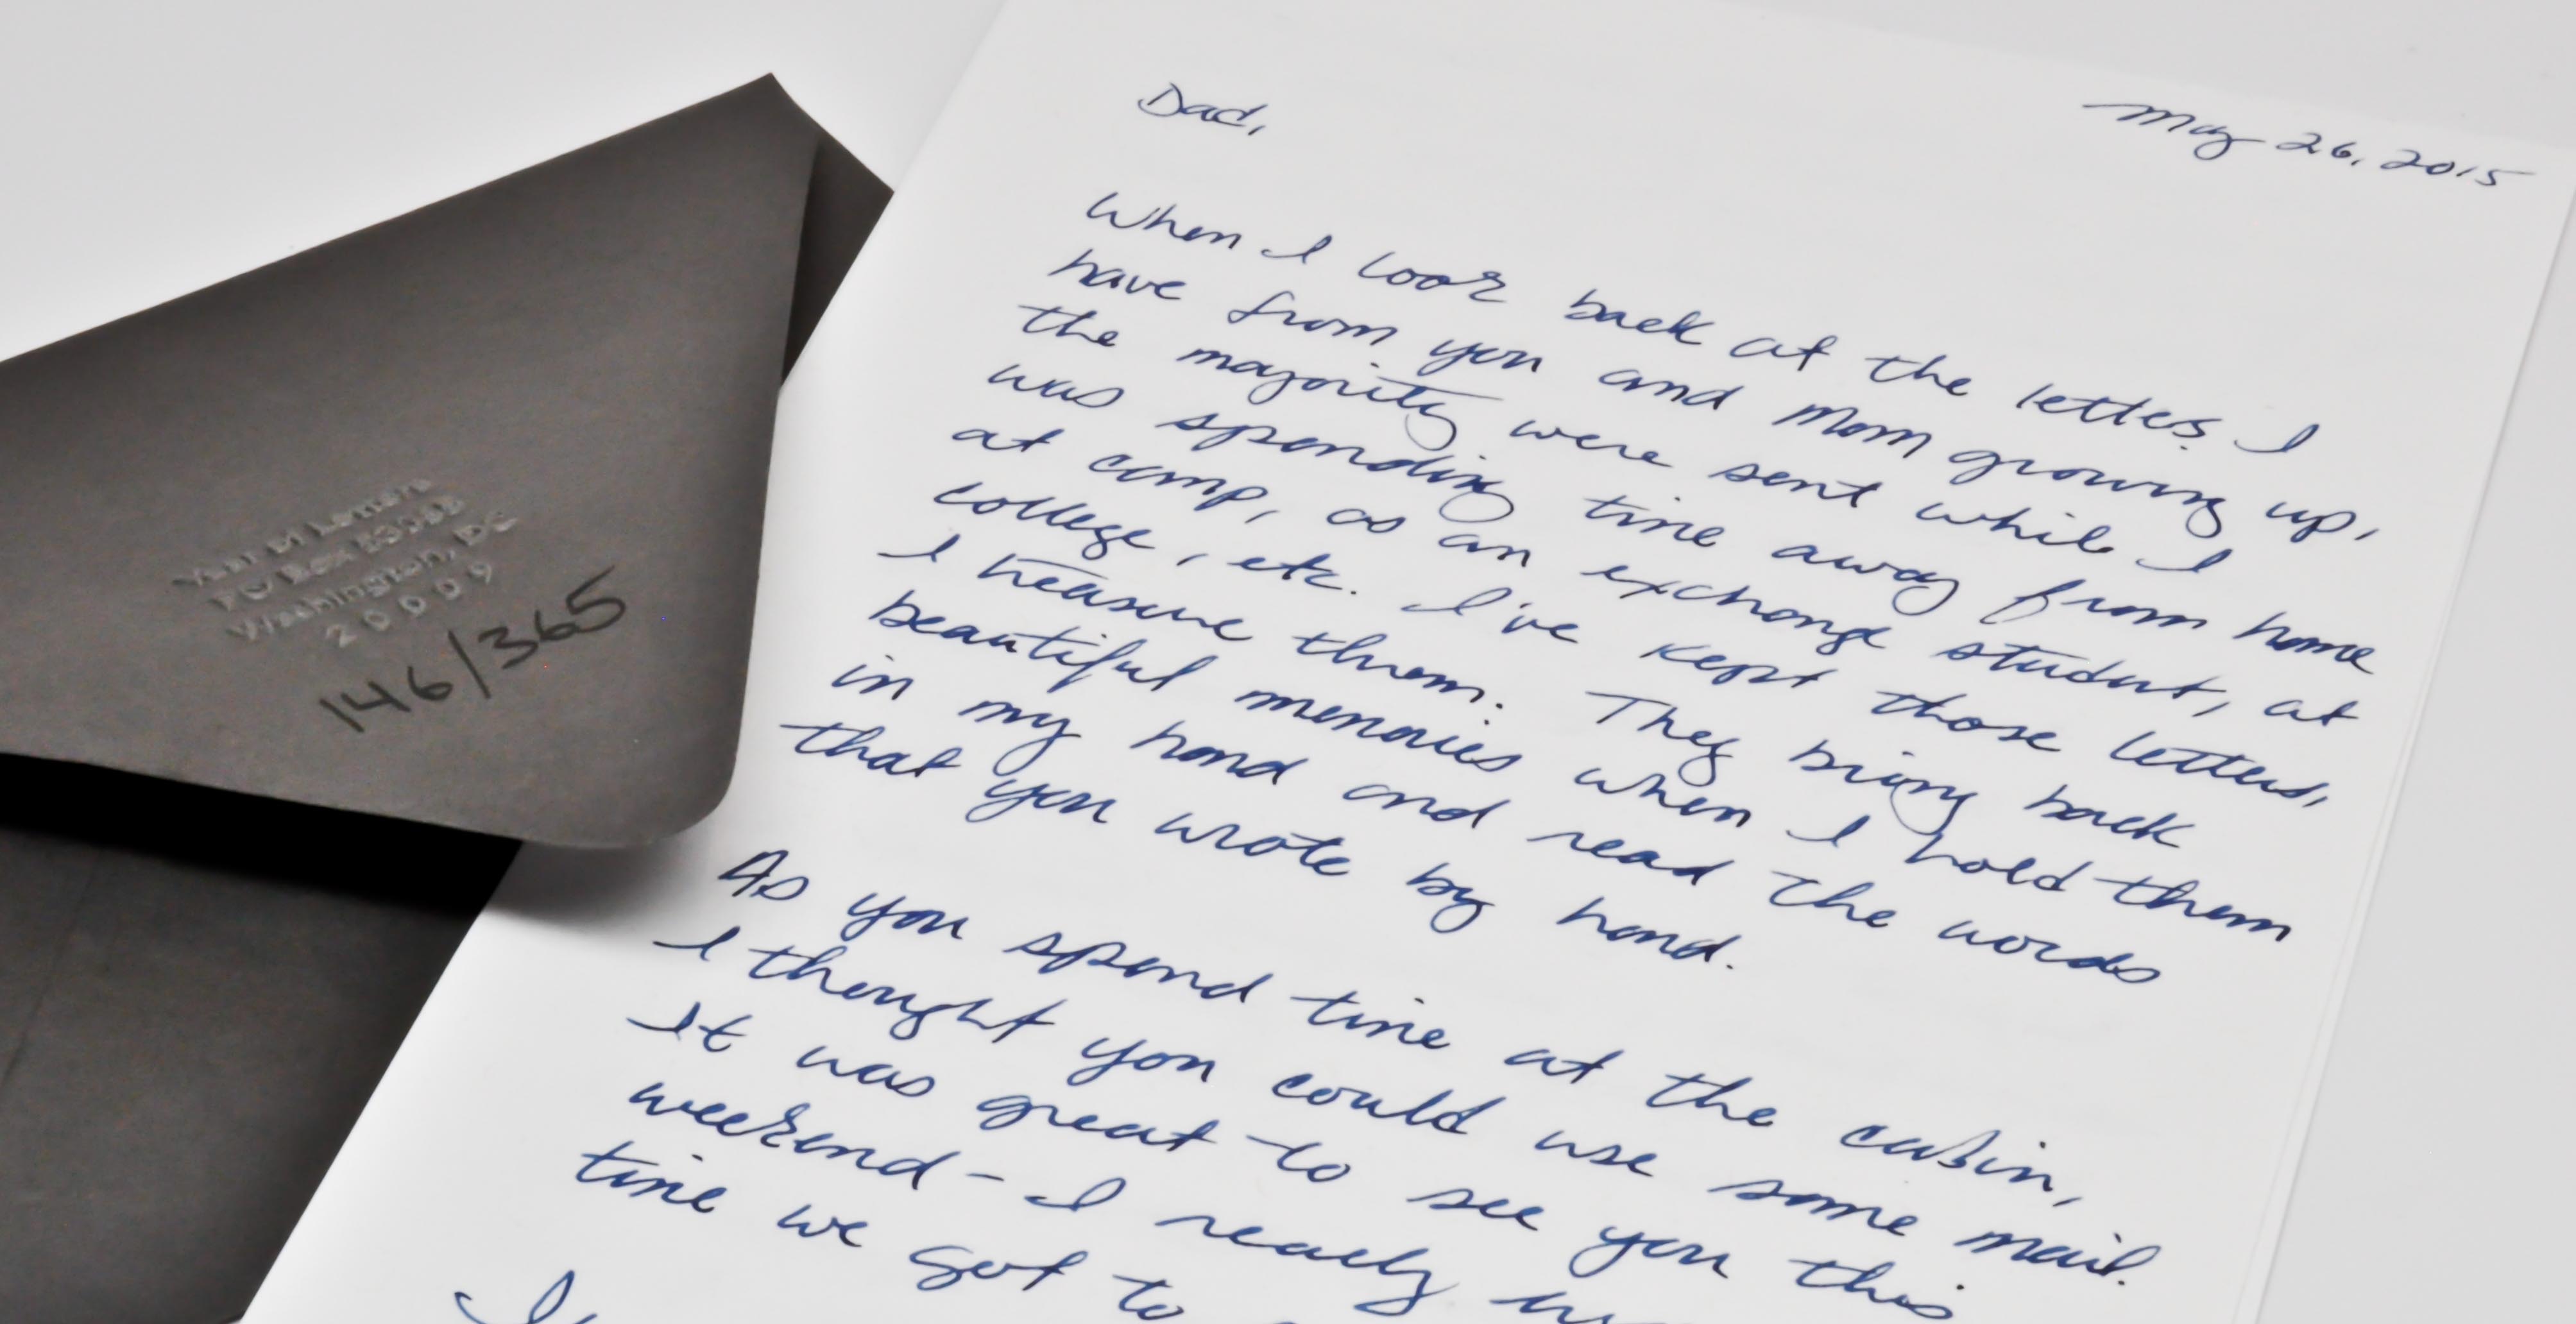 Year of Letters
PO Box
Washington, DC
20009
146/365
May 26, 2015
Dad,
When I look back at the letters I
have from you and Mom growing up,
the majority were sent while I
was spending time away from home
at camp, as an exchange student, at
college, etc. I've kept those letters,
I treasure them. They bring back
beautiful memories when I hold them
in my hand and read the words
that you wrote by hand.
As you spend time at the cabin,
I thought you could use some mail.
It was great to see you this
weekend - I really
time we got to